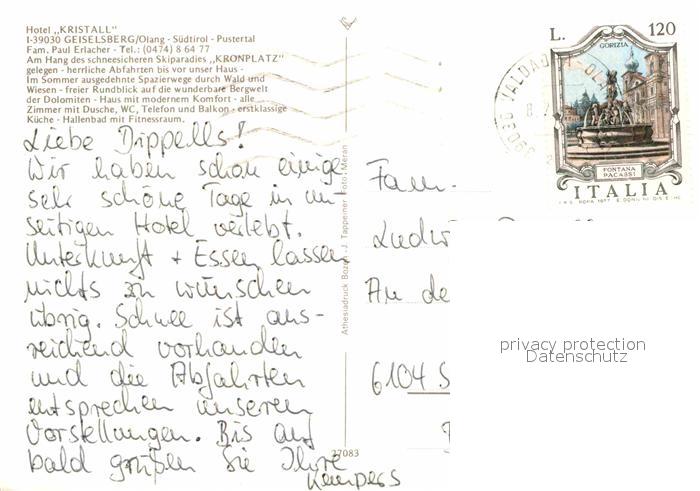 Hotel „KRISTALL"
I-39030 GEISELSBERG/Olang - Südtirol - Pustertal
Fam. Paul Erlacher - Tel.: (0474) 8 64 77
Am Hang des schneesicheren Skiparadies „KRONPLATZ"
gelegen - herrliche Abfahrten bis vor unser Haus -
Im Sommer ausgedehnte Spazierwege durch Wald und
Wiesen - freier Rundblick auf die wunderbare Bergwelt
der Dolomiten - Haus mit modernem Komfort - alle
Zimmer mit Dusche, WC, Telefon und Balkon - erstklassige
Küche - Hallenbad mit Fitnessraum.
Liebe Dippells!
Wir haben schon einige
sehr schöne Tage in um-
seitigen Hotel verlebt.
Unterkunft + Essen lassen
nichts zu wünschen
übrig. Schnee ist aus-
reichend vorhanden
und die Abfahrten
entsprechen unseren
Vorstellungen. Bis auf
bald grüßen Sie Ihre
Kempers
Athesiadruck Bozen - J. Tappeiner Foto, Meran
27083
L. 120
GORIZIA
FONTANA
PACASSI
ITALIA
39030 VALDAO
Fam.
Ludw
An de
6104 S
privacy protection
Datenschutz